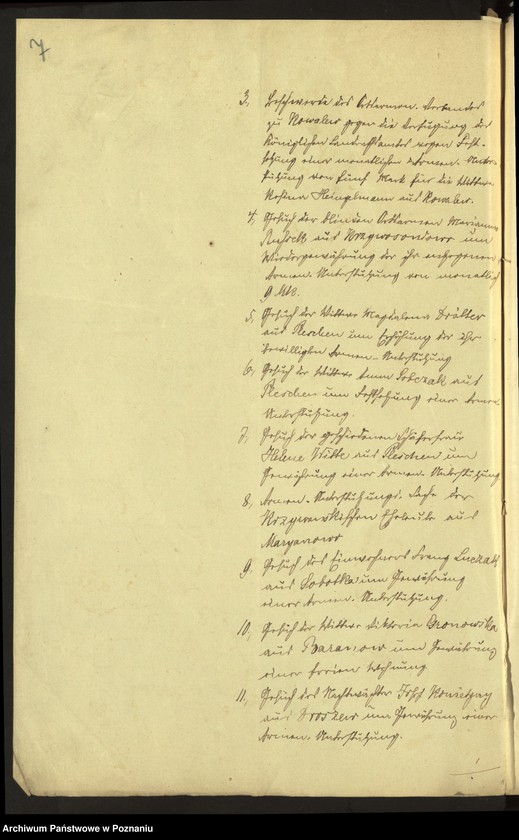 7
3, Beschwerde des Ortsarmen-Verbandes
zu Kowalew gegen die Verfügung des
Königlichen Landrathsamtes wegen Fest-
setzung einer monatlichen Armen-Unter-
stützung von fünf Mark für die Wittwe
Rosina Heinzelmann aus Kowalew.
4, Gesuch der blinden Ortsarmen Marianna
aus um
Wiedergewährung der ihr entzogenen
Armen-Unterstützung von monatlich
9 Mk.
5, Gesuch der Wittwe Magdalena Drößler
aus Pleschen um Erhöhung der ihr
bewilligten Armen-Unterstützung
6, Gesuch der Wittwe Sobczak aus
Pleschen um Festsetzung einer Armen-
Unterstützung.
7, Gesuch der geschiedenen Schäferfrau
Helene Witte aus Pleschen um
Gewährung einer Armen-Unterstützung
8, Armen-Unterstützungs-Sache der
Eheleute aus
Maryanowo
9, Gesuch des Einwohners Franz Luczak
aus Sobotka um Gewährung
einer Armen-Unterstützung.
10, Gesuch der Wittwe Viktoria Bronowska
aus Baranow um Gewährung
einer freien Wohnung
11, Gesuch des Nachtwächter
aus Droszew um Gewährung einer
Armen-Unterstützung.
Archiwum Państwowe w Poznaniu